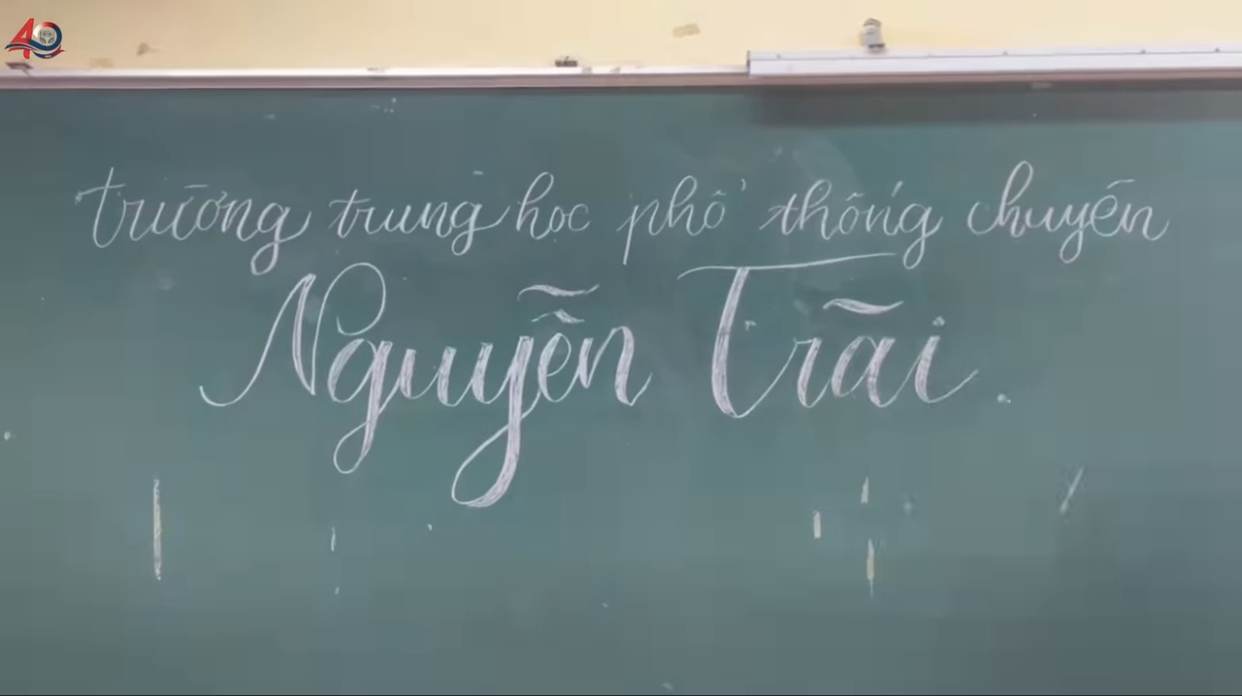 40
trường trung học phổ thông chuyên
Nguyễn Trãi